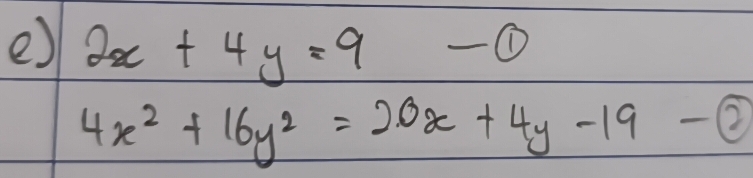 e) 2x + 4y = 9 — ①
4x² + 16y² = 20x + 4y - 19 — ②